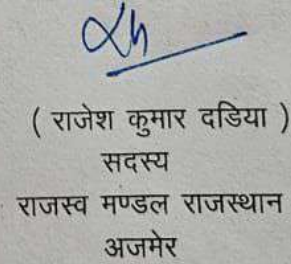 ( राजेश कुमार दडिया )
सदस्य
राजस्व मण्डल राजस्थान
अजमेर